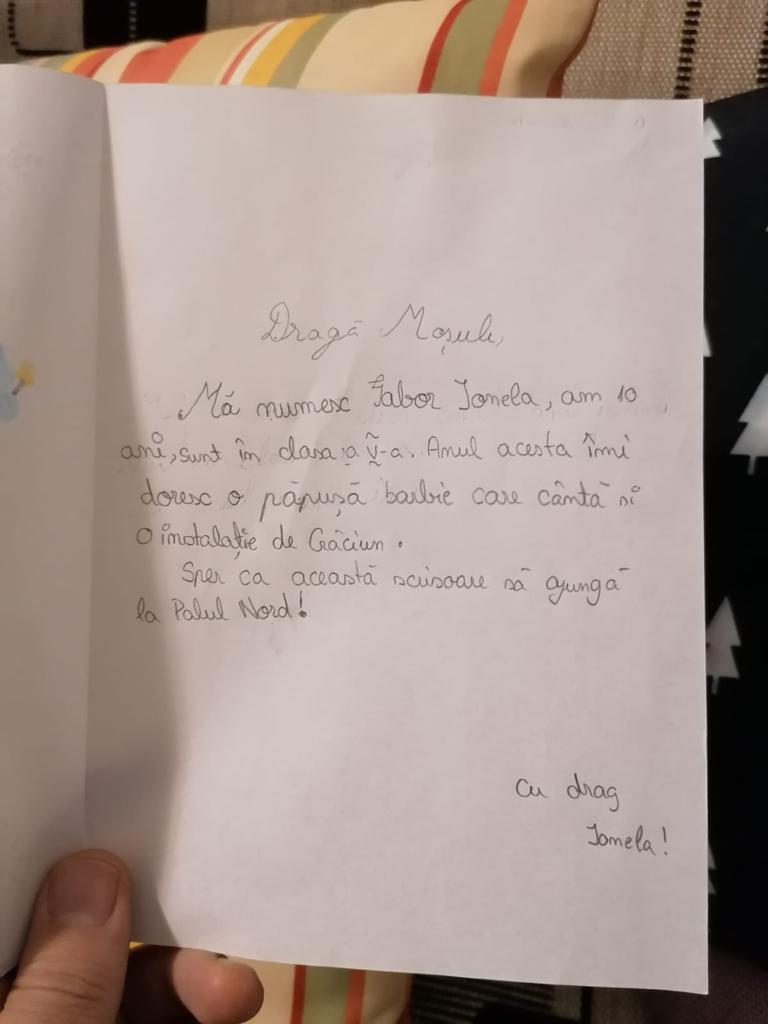 Dragă Moșule,
Mă numesc Fabor Ionela, am 10
ani, sunt în clasa a V-a. Anul acesta îmi
doresc o păpușă barbie care cântă si
o instalație de Crăciun.
Sper ca această scrisoare să ajungă
la Polul Nord!
Cu drag
Ionela!